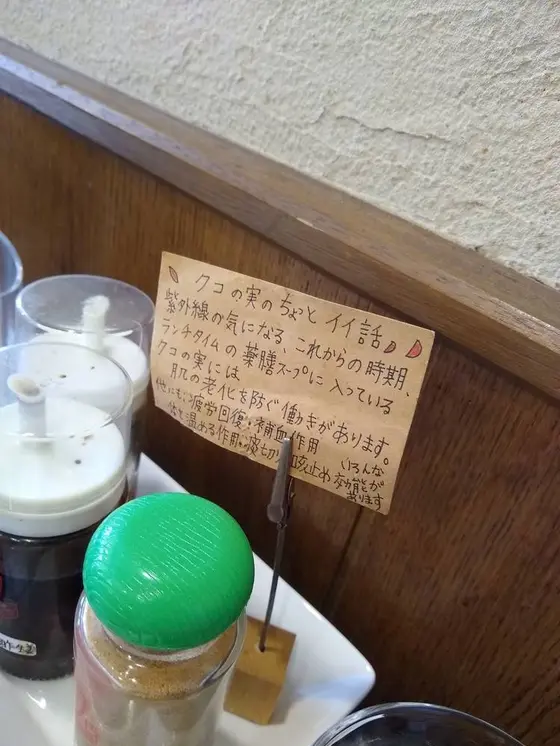 クコの実のちょっとイイ話
紫外線の気になる、これからの時期、
ランチタイムの薬膳スープに入っている
クコの実には
肌の老化を防ぐ働きがあります。
他にも、疲労回復・補血作用
体を温める作用・痰切り 咳止め いろんな
効能が
あります